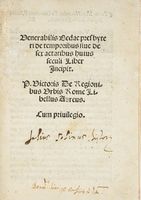 Venerabilis Bedae presbyte
ri de temporibus siue de
sex aetatibus huius
seculi Liber
Incipit.
P. Victoris De Regioni
bus Vrbis Rome Li
bellus Aureus.
Cum priuilegio.